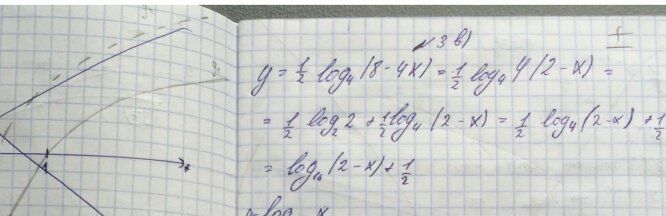 № 3 в)
y = 1/2 log₄(8 - 4x) = 1/2 log₄ 4(2 - x) =
= 1/2 log₂ 2 + 1/2 log₄ (2 - x) = 1/2 log₄(2-x) + 1/2
= log₁₆(2-x) + 1/2